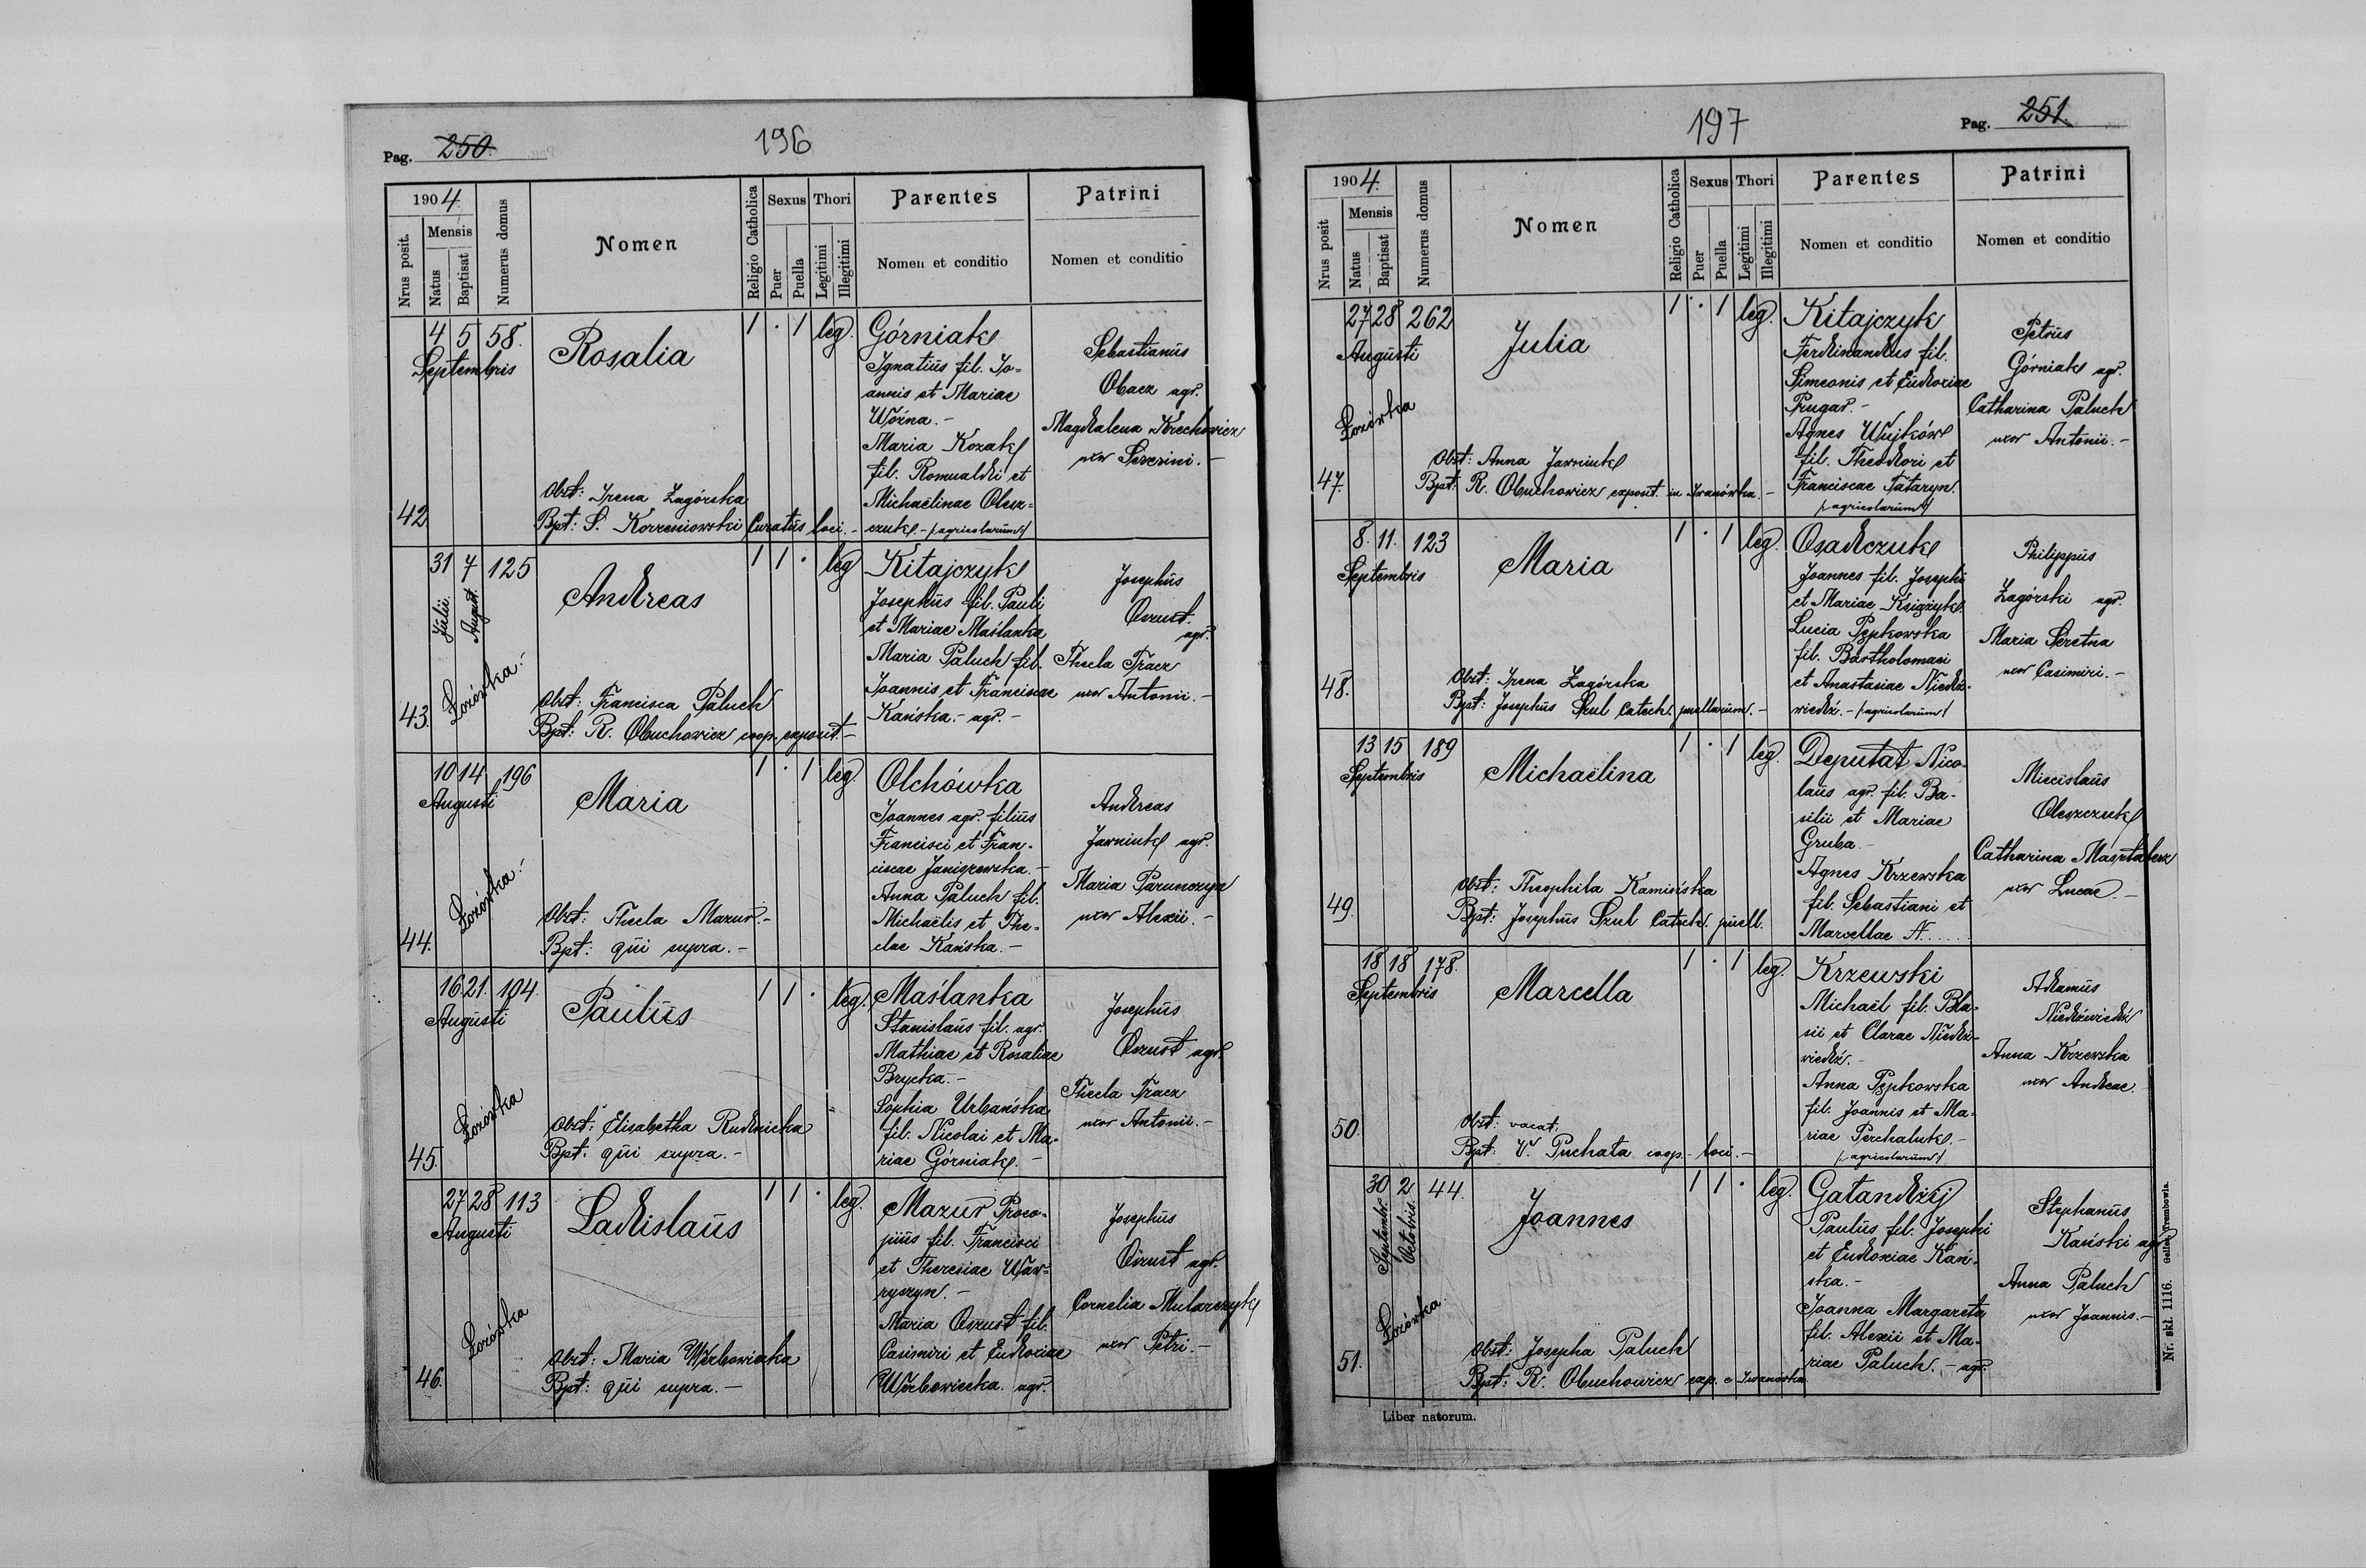 Pag. 250.
196
1904.
Nrus posit.
Mensis
Natus
Baptisat
Numerus domus
Nomen
Religio Catholica
Sexus
Puer
Puella
Thori
Legitimi
Illegitimi
Parentes
Nomen et conditio
Patrini
Nomen et conditio
4 5 58.
Septembris
42
Rosalia
Obst: Irena Zagórska
Bpt: S. Korzeniowski Curatus loci.-
1 · 1 leg.
Górniak
Ignatius fil. Jo=
annis et Mariae
Woźna.-
Maria Kozak
fil. Romualdi et
Michaëlinae Olesz=
czuk.- /:agricolarum:/
Sebastianus
Obacz agr.
Magdalena Krechowicz
uxor Severini.-
31 7 125
Julii. August.
Łozówka.
43.
Andreas
Obst: Francisca Paluch
Bpt: R. Obuchowicz coop. exposit.-
1 1 · leg
Kitajczyk
Josephus fil. Pauli
et Mariae Maślanka
Maria Paluch fil.
Joannis et Franciscae
Kańska.- agr.-
Josephus
Oszust.
agr.
Thecla Tracz
uxor Antonii.-
10 14 196
Augusti
Łozówka.
44.
Maria
Obst: Thecla Mazur.-
Bpt: qui supra.-
1 · 1 leg.
Olchówka
Joannes agr. filius
Francisci et Fran-
ciscae Janiszewska.-
Anna Paluch fil.
Michaëlis et The-
clae Kańska.-
Andreas
Jawniuk agr.
Maria
uxor Alexii.-
16 21. 104.
Augusti
Łozówka
45.
Paulus
Obst: Elisabetha Rudnicka
Bpt: qui supra.-
1 1 · leg.
Maślanka
Stanislaus fil. agr.
Mathiae et Rosaliae
Brycka.-
Sophia Urbańska
fil. Nicolai et Ma-
riae Górniak.-
Josephus
Oszust agr.
Thecla Tracz
uxor Antonii.-
27 28 113
Augusti
Łozówka
46.
Ladislaus
Obst: Maria Werbowiecka
Bpt: qui supra.-
1 1 · leg.
Mazur Proco-
pius fil. Francisci
et Theresiae Waw-
ryszyn.-
Maria Oszust fil.
Casimiri et Eudoxiae
Werbowiecka. agr.
Josephus
Oszust agr.
Cornelia Mularczyk
uxor Petri.-
197
Pag. 251.
1904.
Nrus posit
Mensis
Natus
Baptisat
Numerus domus
Nomen
Religio Catholica
Sexus
Puer
Puella
Thori
Legitimi
Illegitimi
Parentes
Nomen et conditio
Patrini
Nomen et conditio
27 28 262
Augusti
Łozówka
47.
Julia
Obst: Anna Jawniuk
Bpt: R. Obuchowicz exposit. in Iwanówka.-
1 · 1 leg.
Kitajczyk
Ferdinandus fil.
Simeonis et Eudoxiae
Prugar.-
Agnes Wujków
fil. Theodori et
Franciscae Tataryn.
/:agricolarum:/
Petrus
Górniak agr.
Catharina Paluch
uxor Antonii.-
8. 11. 123
Septembris
48.
Maria
Obst: Irena Zagórska
Bpt: Josephus Szul Catech. puellarum.-
1 · 1 leg.
Osadczuk
Joannes fil. Josephi
et Mariae Książyk.
Lucia Pępkowska
fil. Bartholomaei
et Anastasiae Niedź-
wiedź.- /:agricolarum:/
Philippus
Zagórski agr.
Maria Seretna
uxor Casimiri.-
13 15 189
Septembris
49.
Michaëlina
Obst: Theophila Kamińska
Bpt: Josephus Szul Catech. puell.
1 · 1 leg.
Deputat Nico-
laus agr. fil. Ba-
silii et Mariae
Gruba.-
Agnes Krzewska
fil. Sebastiani et
Marcellae N......
Miecislaus
Oleszczuk
Catharina Masztalerz
uxor Lucae.-
18 18 178.
Septembris
50.
Marcella
Obst: vacat.
Bpt: V. Puchała coop. loci.-
1 · 1 leg.
Krzewski
Michaël fil. Bla-
sii et Clarae Niedź-
wiedź.-
Anna Pępkowska
fil. Joannis et Ma-
riae Perchaluk.-
/:agricolarum:/
Adamus
Niedźwiedź
Anna Krzewska
uxor Andreae.
30 2 44.
Septembr. Octobris.
Łozówka.
51.
Joannes
Obst: Josepha Paluch
Bpt: R. Obuchowicz exp. e Iwanówka
1 1 · leg.
Gatandzij
Paulus fil. Josephi
et Eudoxiae Kań-
ska.-
Joanna Margareta
fil. Alexii et Ma-
riae Paluch.- agr.
Stephanus
Kański agr.
Anna Paluch
uxor Joannis.-
Liber natorum.
Nr. skł. 1116. Galler, Trembowla.